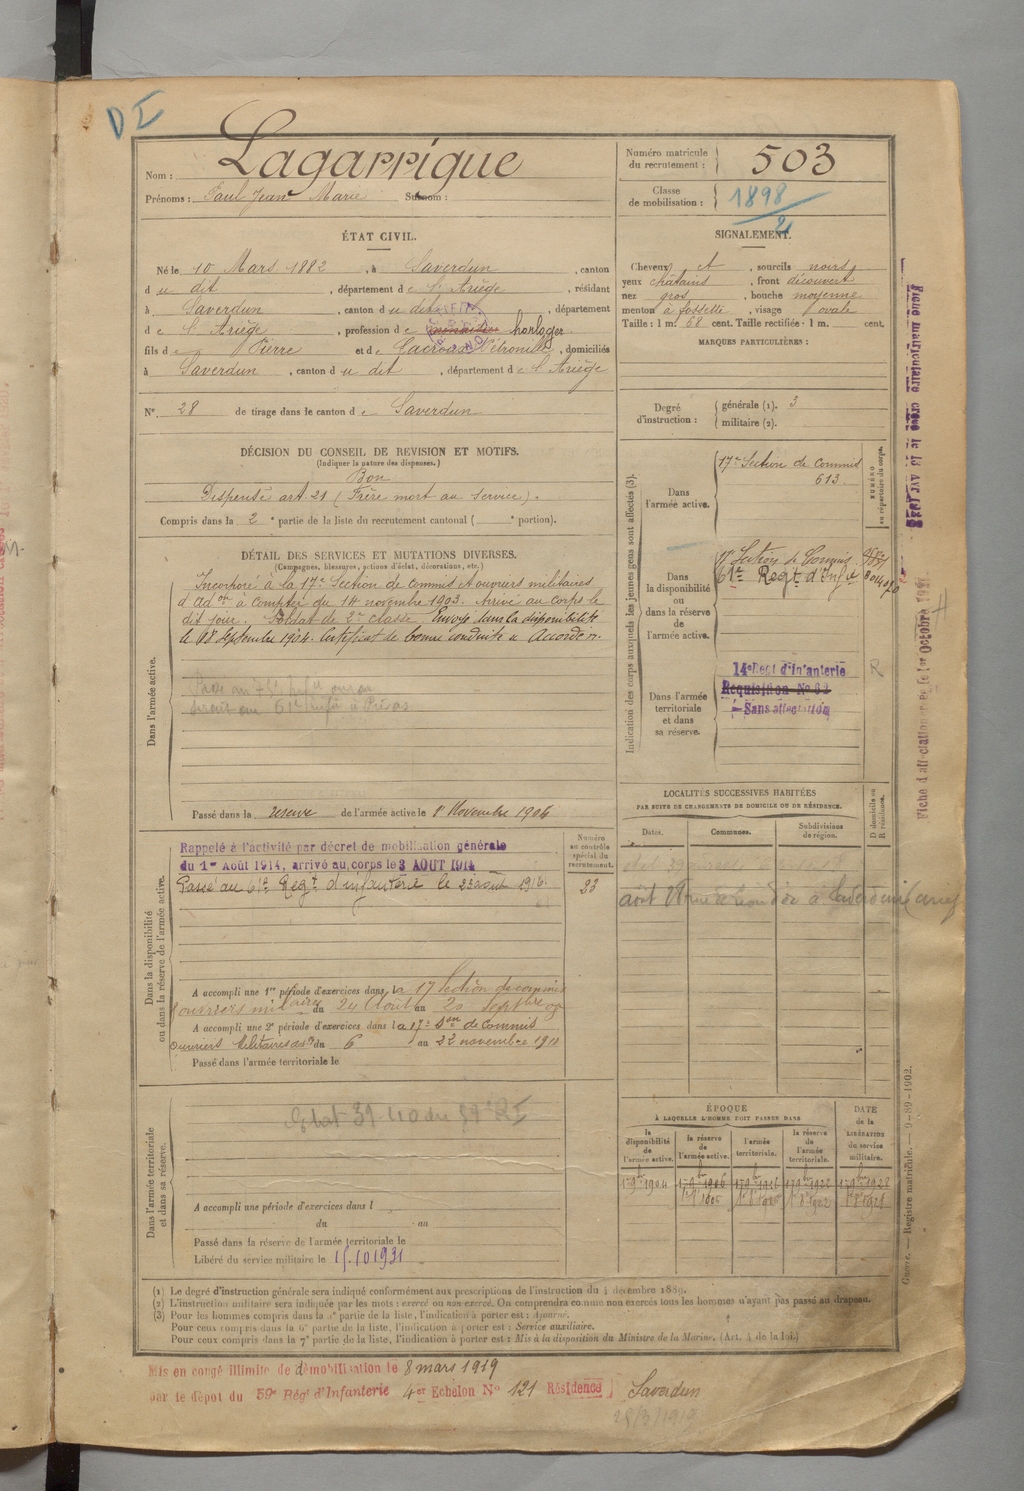 DI
Nom : Lagarrigue
Prénoms : Paul Jean Marie Surnom :
Numéro matricule du recrutement : 503
Classe de mobilisation : 1898/2
ÉTAT CIVIL.
Né le 10 Mars 1882, à Saverdun, canton
du dit, département de l'Ariège, résidant
à Saverdun, canton du dit, département
de l'Ariège, profession de horloger
fils de Pierre et de Pétronille, domiciliés
à Saverdun, canton du dit, département de l'Ariège
N° 28 de tirage dans le canton de Saverdun
SIGNALEMENT.
Cheveux et, sourcils noirs,
yeux châtains, front découvert
nez gros, bouche moyenne
menton à fossette, visage ovale
Taille : 1 m. 68 cent. Taille rectifiée : 1 m. cent.
MARQUES PARTICULIÈRES :
Degré d'instruction : générale (1). 3
militaire (2).
DÉCISION DU CONSEIL DE REVISION ET MOTIFS.
(Indiquer la nature des dispenses.)
Bon
Dispensé art. 21 (Frère mort au service).
Compris dans la 2e partie de la liste du recrutement cantonal ( e portion).
DÉTAIL DES SERVICES ET MUTATIONS DIVERSES.
(Campagnes, blessures, actions d'éclat, décorations, etc.)
Dans l'armée active.
Incorporé à la 17e Section de commis et ouvriers militaires
d'Adon à compter du 14 novembre 1903. Arrivé au corps le
dit jour. Soldat de 2e classe. Envoyé dans la disponibilité
le 18 septembre 1904. Certificat de bonne conduite "Accordé".
Passé dans la réserve de l'armée active le 1er Novembre 1906
Indication des corps auxquels les jeunes gens sont affectés (3).
NUMÉRO au répertoire du corps.
Dans l'armée active.
17e Section de Commis
613
Dans la disponibilité ou dans la réserve de l'armée active.
17e Section de Commis
61e Régt d'Infie
Dans l'armée territoriale et dans sa réserve.
14e Régt d'Infanterie
Réquisition No 62
Sans affectation
R
LOCALITÉS SUCCESSIVES HABITÉES
PAR SUITE DE CHANGEMENTS DE DOMICILE OU DE RÉSIDENCE.
Dates. Communes. Subdivisions de région. D domicile ou R résidence.
Dans la disponibilité ou dans la réserve de l'armée active.
Numéro au contrôle spécial du recrutement.
Rappelé à l'activité par décret de mobilisation générale
du 1er Août 1914, arrivé au corps le 3 AOUT 1914
Passé au 61e Régt d'infanterie le 23 août 1916.
23
A accompli une 1re période d'exercices dans la 17 Section de commis
& ouvriers militaires du 24 Août au 20 Septbre 09
A accompli une 2e période d'exercices dans la 17e Son de Commis
ouvriers Militaires du 6 au 22 novembre 1911
Passé dans l'armée territoriale le
Dans l'armée territoriale et dans sa réserve.
A accompli une période d'exercices dans l
du au
Passé dans la réserve de l'armée territoriale le
Libéré du service militaire le 15.10.1931
ÉPOQUE
À LAQUELLE L'HOMME DOIT PASSER DANS
la disponibilité de l'armée active.
la réserve de l'armée active.
l'armée territoriale.
la réserve de l'armée territoriale.
DATE de la LIBÉRATION du service militaire.
(1) Le degré d'instruction générale sera indiqué conformément aux prescriptions de l'instruction du 4 décembre 1889.
(2) L'instruction militaire sera indiquée par les mots : exercé ou non exercé. On comprendra comme non exercés tous les hommes n'ayant pas passé au drapeau.
(3) Pour les hommes compris dans la 5e partie de la liste, l'indication à porter est : Ajourné.
Pour ceux compris dans la 6e partie de la liste, l'indication à porter est : Service auxiliaire.
Pour ceux compris dans la 7e partie de la liste, l'indication à porter est : Mis à la disposition du Ministre de la Marine. (Art. 4 de la loi.)
Guerre. — Registre matricule. — 9-89-1902.
Mis en congé illimité de démobilisation le 8 mars 1919
par le dépôt du 59e Régt d'Infanterie 4er Echelon No 121 Résidence Saverdun
28/3/1919